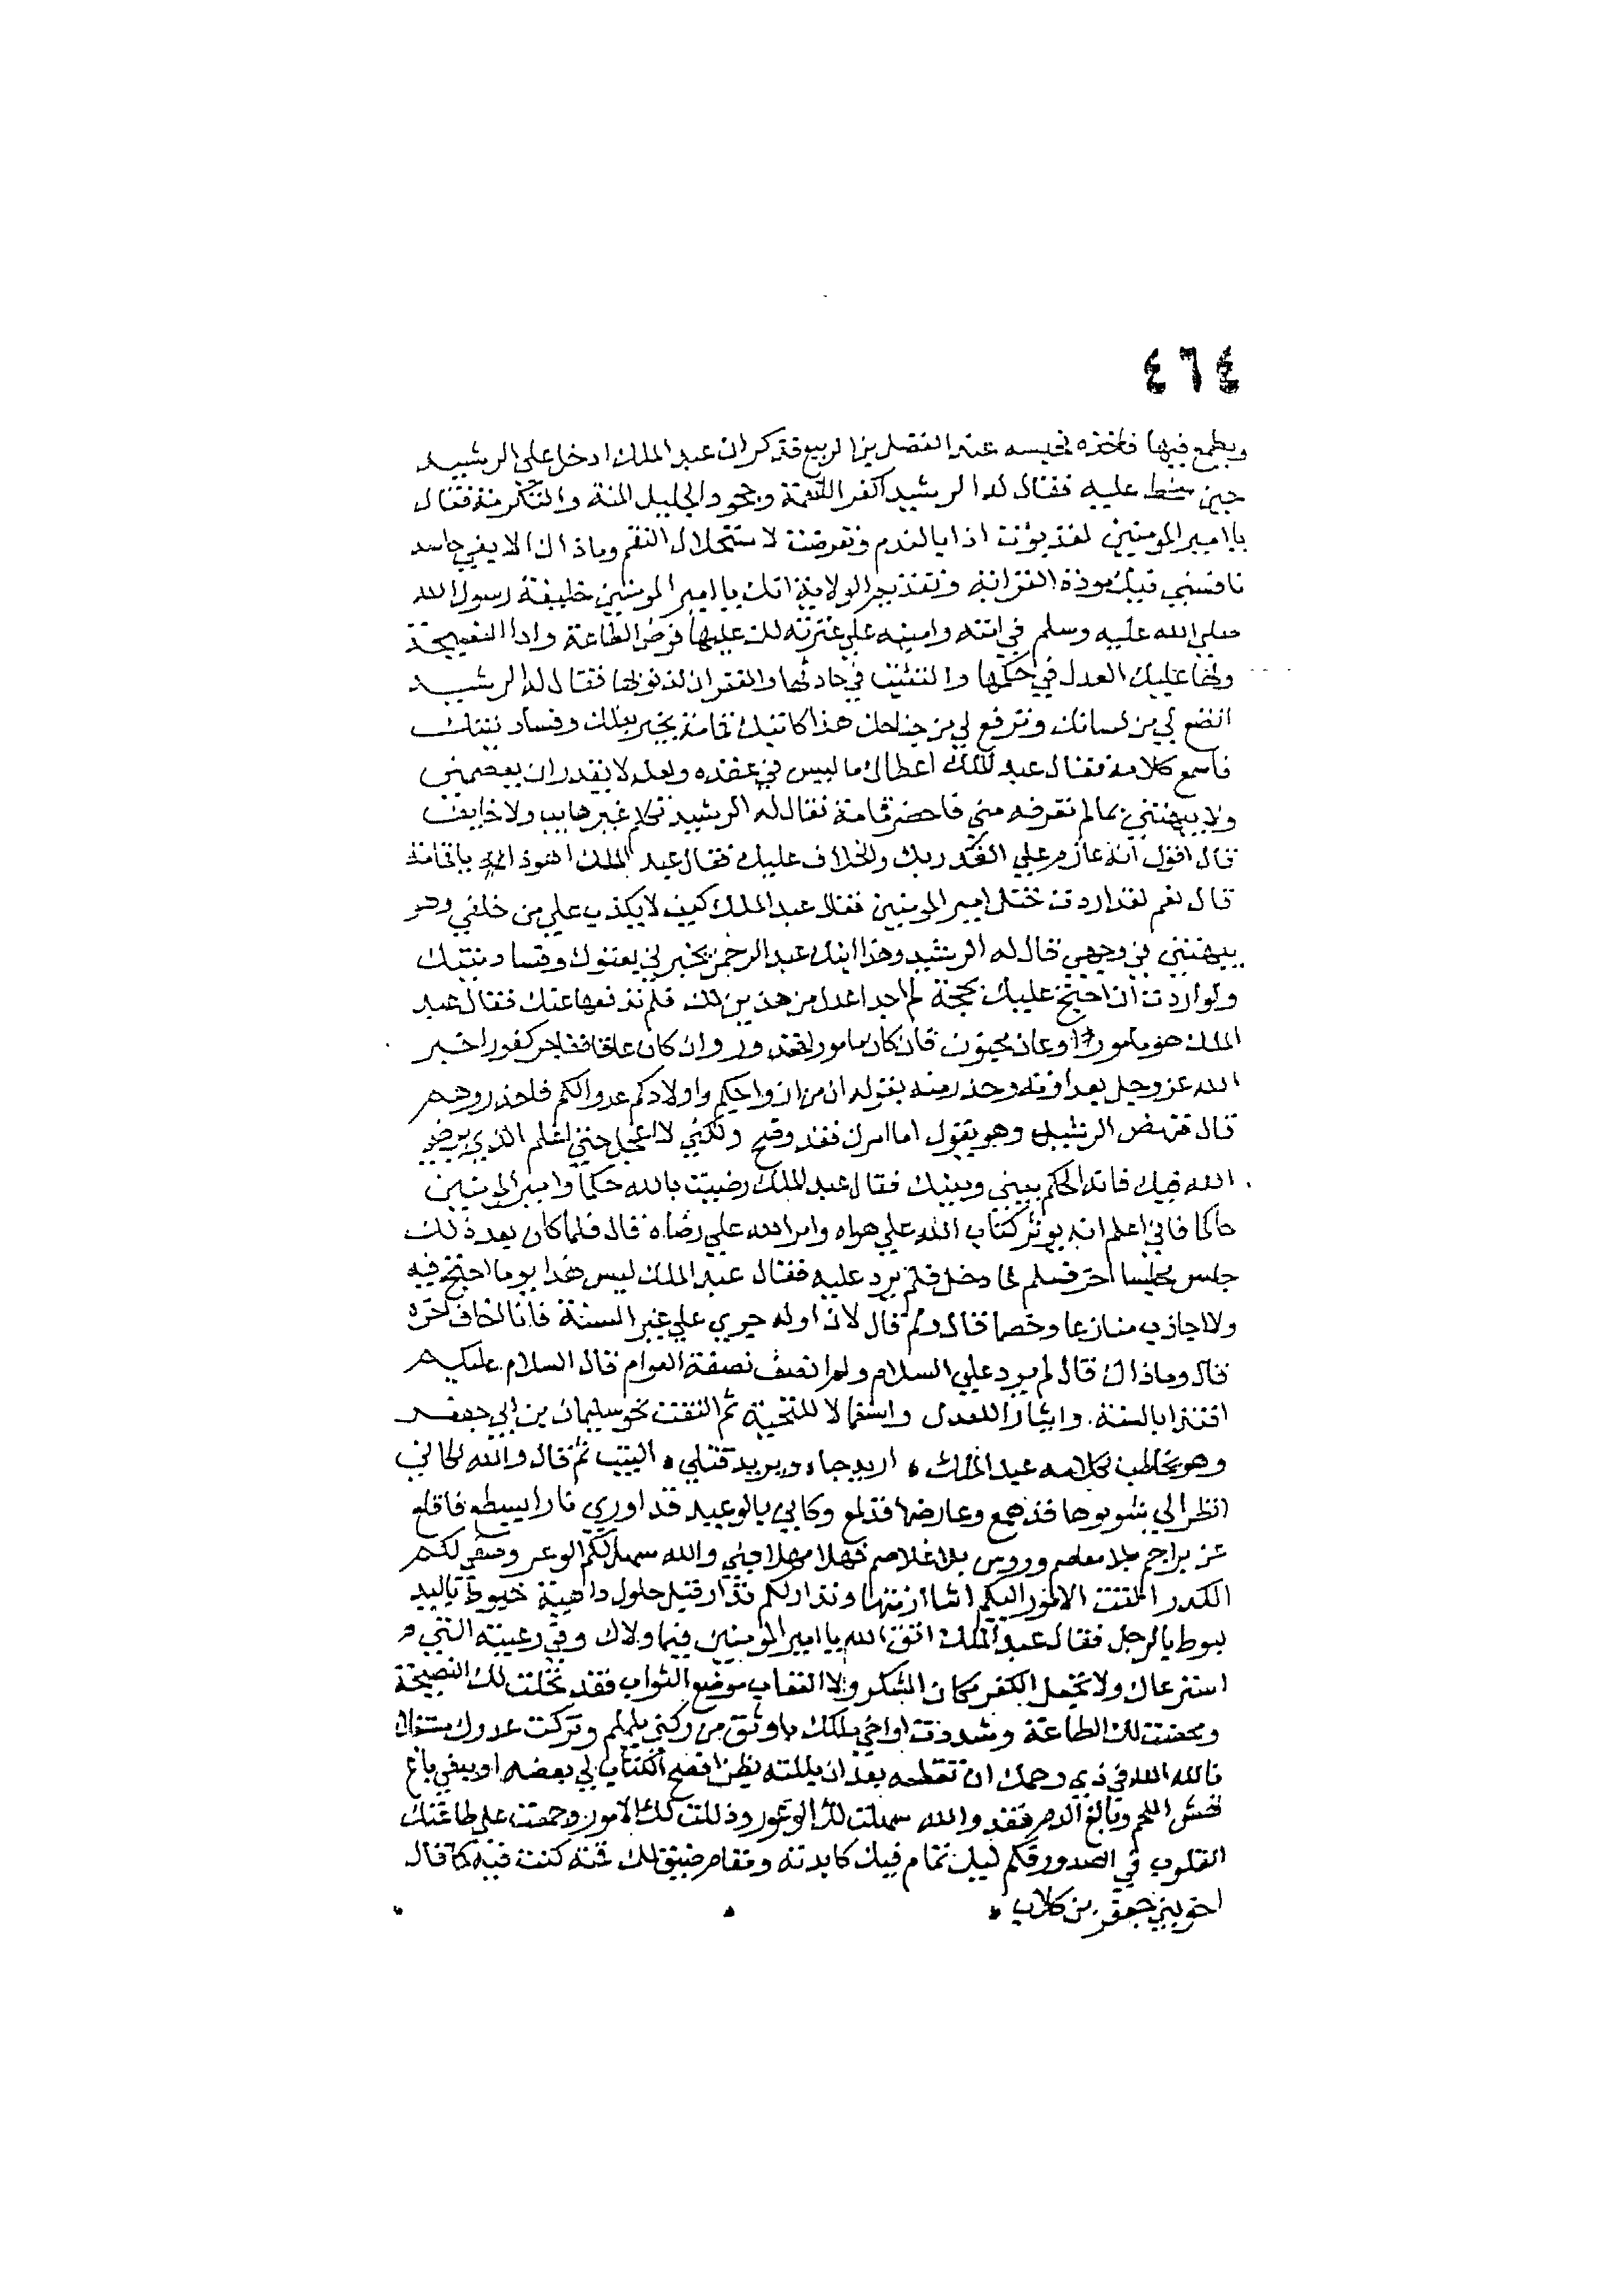 ٤٦٤
ويطمع فيها فاخذه فحبسه عند الفضل بن الربيع فذكر ان عبد الملك ادخل على الرشيد
حين سخط عليه فقال له الرشيد اكفرا للنعمة وجحود الجليل المنة والتكرمة فقال
يا امير المومنين لقد بؤت اذا بالندم وتعرضت لاستحلال النقم وما ذاك الا بغي حاسد
نافسني فيك مودة القرابة وتقديم الولاية انك يا امير المومنين خليفة رسول الله
صلى الله عليه وسلم في امته وامينه على عترته لك عليها فرض الطاعة وادا النصيحة
ولها عليك العدل في حكمها والتثبت في حادثها والغفران لذنوبها فقال له الرشيد
اتضع لي من لسانك وترفع لي من جناحك هذا كاتبك قمامة يخبر بغلك وفساد نيتك
فاسمع كلامه فقال عبد الملك اعطاك ما ليس في عقده ولعله لا يقدر ان يعضهني
ولا يبهتني بما لم يعرفه مني فاحضر قمامة فقال له الرشيد تكلم غير هايب ولا خايف
قال اقول انه عازم على الغدر بك والخلاف عليك فقال عبد الملك اهو ذاك يا قمامة
قال نعم لقد اردت ختل امير المومنين فقال عبد الملك كيف لا يكذب علي من خلفي وهو
يبهتني في وجهي قال له الرشيد وهذا ابنك عبد الرحمن يخبرني بعتوك وفساد نيتك
ولو اردت ان احتج عليك بحجة لم اجد اعدل من هذين لك فلم تدفعها عنك فقال عبد
الملك هو مامور او عاق مجبور فان كان مامورا فمعذور وان كان عاقا ففاجر كفور اخبر
الله عز وجل بعداوته وحذر منه بقوله ان من ازواجكم واولادكم عدوا لكم فاحذروهم
قال فنهض الرشيد وهو يقول اما امرك فقد وضح ولكني لا اعجل حتى اعلم الذي يرضي
الله فيك فانه الحكم بيني وبينك فقال عبد الملك رضيت بالله حكما وامير المومنين
حاكما فاني اعلم انه يوثر كتاب الله على هواه وامر الله على رضاه قال فلما كان بعد ذلك
جلس مجلسا اخر فسلم لما دخل فلم يرد عليه فقال عبد الملك ليس هذا يوما احتج فيه
ولا اجاذب منازعا وخصما قال ولم قال لان اوله جرى على غير السنة فانا اخاف اخره
قال وما ذاك قال لم يرد علي السلام ولم انصف نصفة العوام قال السلام عليكم
اقتدا بالسنة. وايثارا للعدل واستعمالا للتحية ثم التفت نحو سليمان بن ابي جعفر
وهو يخاطب بكلامه عبد الملك ، اريد حياه ويريد قتلي ، البيت ثم قال والله لكاني
انظر الى شوبوبها قد همع وعارضها قد لمع وكاني بالوعيد قد اورى نارا يسطع فاقلع
عن براجم بلا معاصم وروس بلا غلاصم فمهلا مهلا فبي والله سهل لكم الوعر وصفى لكم
الكدر والقت الامور اليكم اثناء ازمتها ونذار لكم نذار قبل حلول داهية خبوط باليد
لبوط بالرجل فقال عبد الملك اتق الله يا امير المومنين فيما ولاك وفي رعيته التي
استرعاك ولا تجعل الكفر مكان الشكر ولا العقاب موضع الثواب فقد نخلت لك النصيحة
ومحضت لك الطاعة وشددت اواخي ملكك باوثق من ركني يلملم وتركت عدوك مشتغلا
فالله الله في ذي رحمك ان تقطعه بعد ان بللته بظن افصح الكتاب لي بعضه او ببغي باغ
نهش اللحم وبالغ الدم فقد والله سهلت لك الوعور وذللت لك الامور وجمعت على طاعتك
القلوب في الصدور فكم ليل تمام فيك كابدته ومقام ضيق لك قمته كنت فيه كما قال
اخو بني جعفر بن كلاب ،